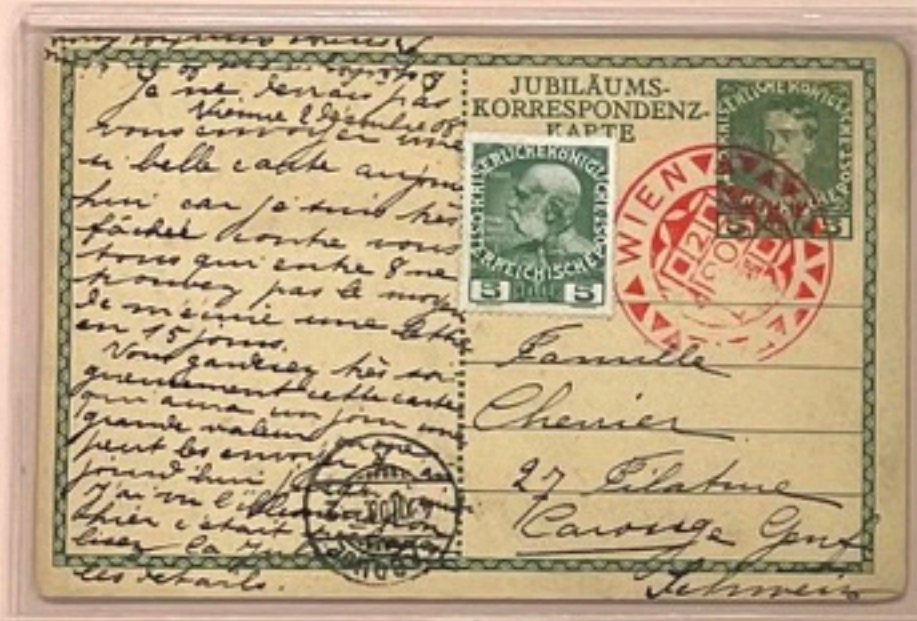 Je ne devrais pas
Vienne 2 Décembre 08
vous envoyer une
si belle carte aujour
hui car je suis très
fâché contre vous
tous qui entre 8 ne
trouvez pas le moyen
de m'écrire une lettre
en 15 jours.
Vous garderez très soi
gneusement cette carte
qui aura un jour une
grande valeur
peut les envoyer
jourd'hui
J'ai vu l'illumination
hier c'était
lisez la
les détails.
JUBILÄUMS-
KORRESPONDENZ-
KARTE
KAISERLICHE KÖNIGLICHE ÖSTERREICHISCHE POST
5 5
WIEN
Famille
Chenier
27 Filature
Carouge Genf
Schweiz